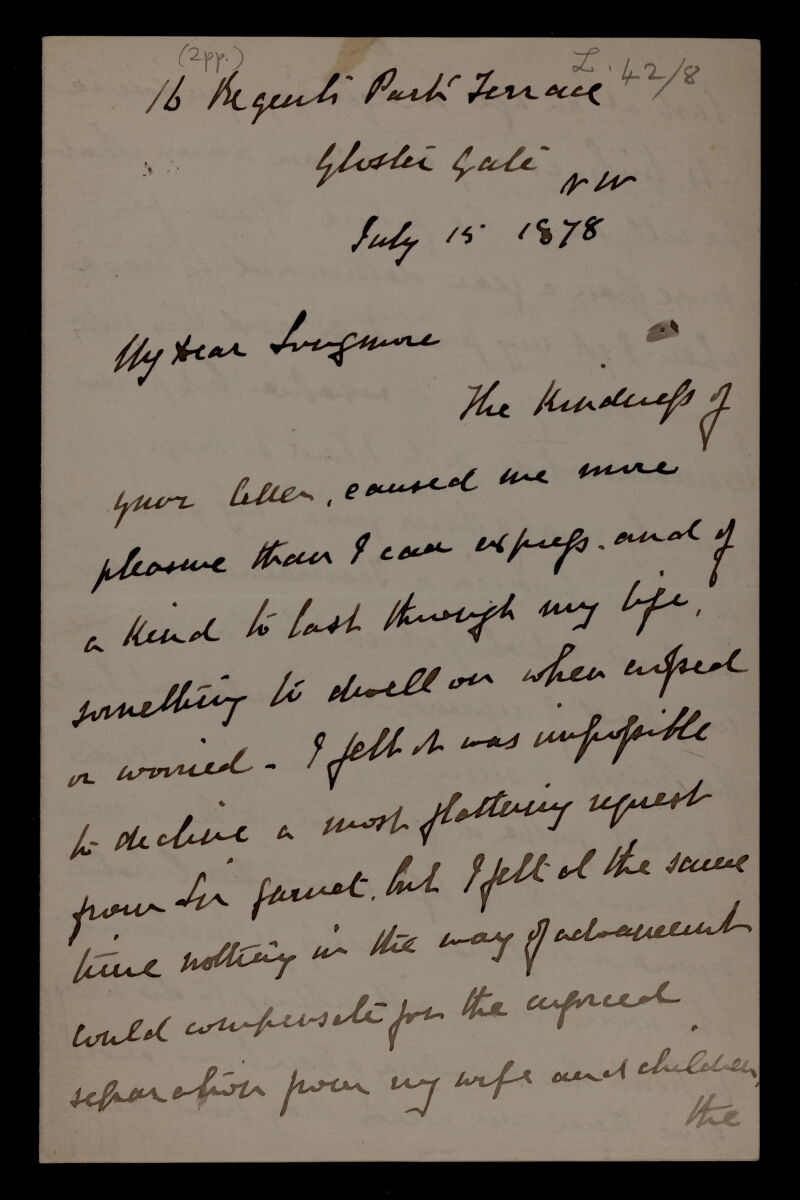 (2pp.)
L. 42/8
16 Regent's Park Terrace
Gloster Gate
NW
July 15 1878
My dear Longmore
The Kindness of
your letter, caused me more
pleasure than I can express. and of
a kind to last through my life,
something to dwell on when
or worried - I felt it was impossible
to decline a most flattering request
from Sir Garnet, but I felt at the same
time nothing in the way of advancement
could compensate for the enforced
separation from my wife and children,
the